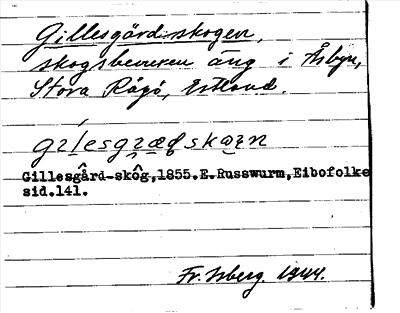 Gillesgård-skogen,
skogsbeneren äng i Åsbyn,
Stora Rågö, Estland.
Gillesgård-skôg,1855.E.Russwurm,Eibofolke
sid.141.
Fr. Isberg. 1944.